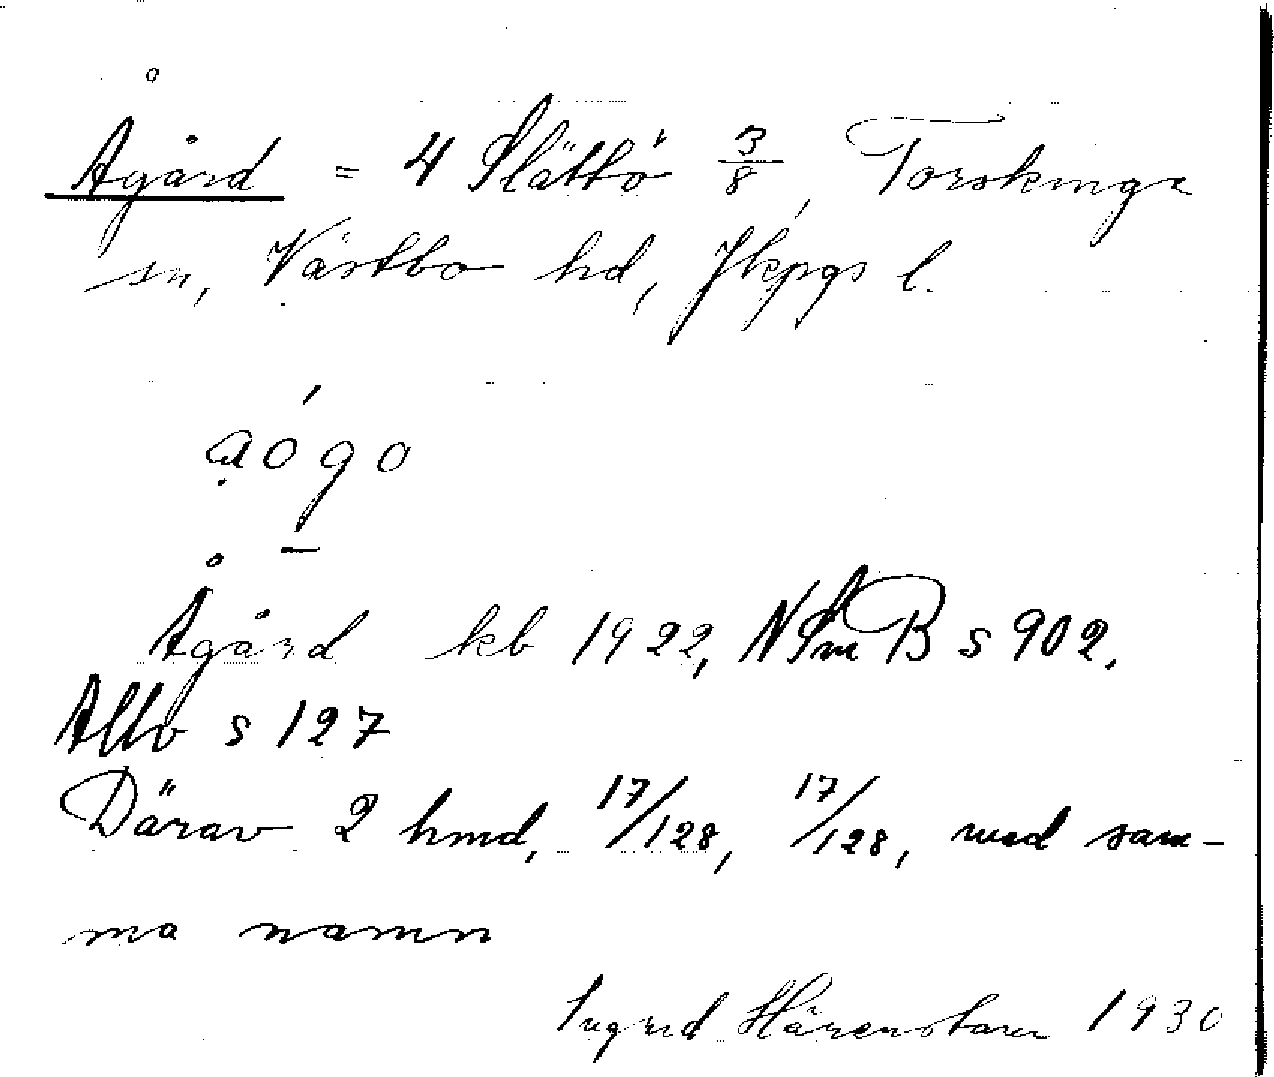 Ågård = 4 Slättö 3/8, Torskinge
sn, Västbo hd, Jkpgs l.
Ågård kb 1922, NSmB s 902.
Allbo s 127
Därav 2 hmd, 17/128, 17/128, med sam-
ma namn
Ingrid Härenstam 1930